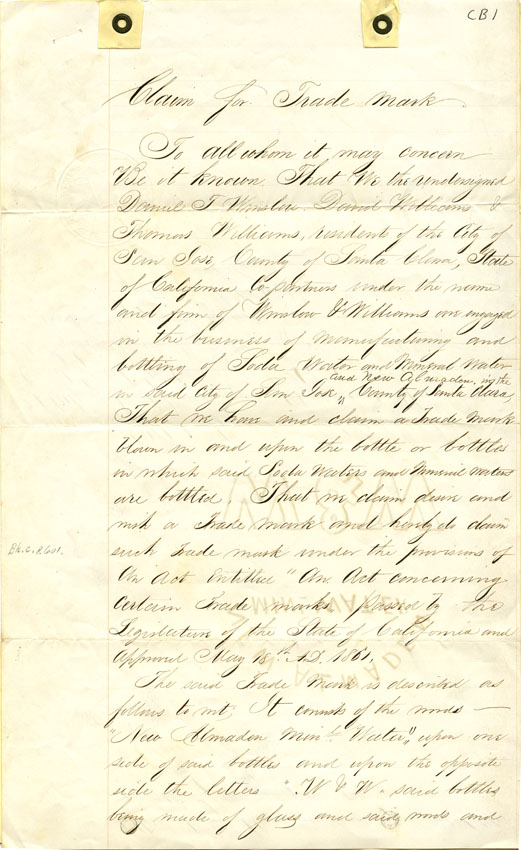 CB1
Claim for Trade Mark
To all whom it may concern
Be it known That We the undersigned
Daniel T Winslow, David Williams &
Thomas Williams, residents of the City of
San Jose, County of Santa Clara, State
of California Co-partners under the name
and firm of Winslow & Williams are engaged
in the business of manufacturing and
bottling of Soda Water and Mineral Water
and New Almaden, in the
in said City of San Jose, County of Santa Clara,
That we have and claim a Trade Mark
blown in and upon the bottle or bottles
in which said Soda Waters and Mineral Waters
are bottled. That we claim desire and
wish a Trade mark and hereby do claim
such Trade mark under the provisions of
An Act Entitled "An Act concerning
Certain Trade marks" passed by the
Legislature of the State of California and
Approved May 18th A.D. 1861.
The said Trade Mark is described as
follows to wit; It consists of the words —
"New Almaden Minl Water", upon one
side of said bottles and upon the opposite
side the letters "W & W. said bottles
being made of glass and said words and